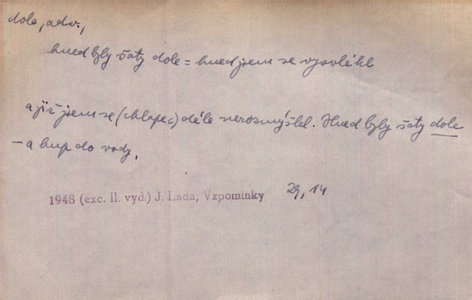 dole, adv.,
hned byly šaty dole = hned jsem se vysvlékl
a již jsem se (chlapec) déle nerozmýšlel. Hned byly šaty dole
– a hup do vody.
1948 (exc. II. vyd.) J. Lada, Vzpomínky 29, 14